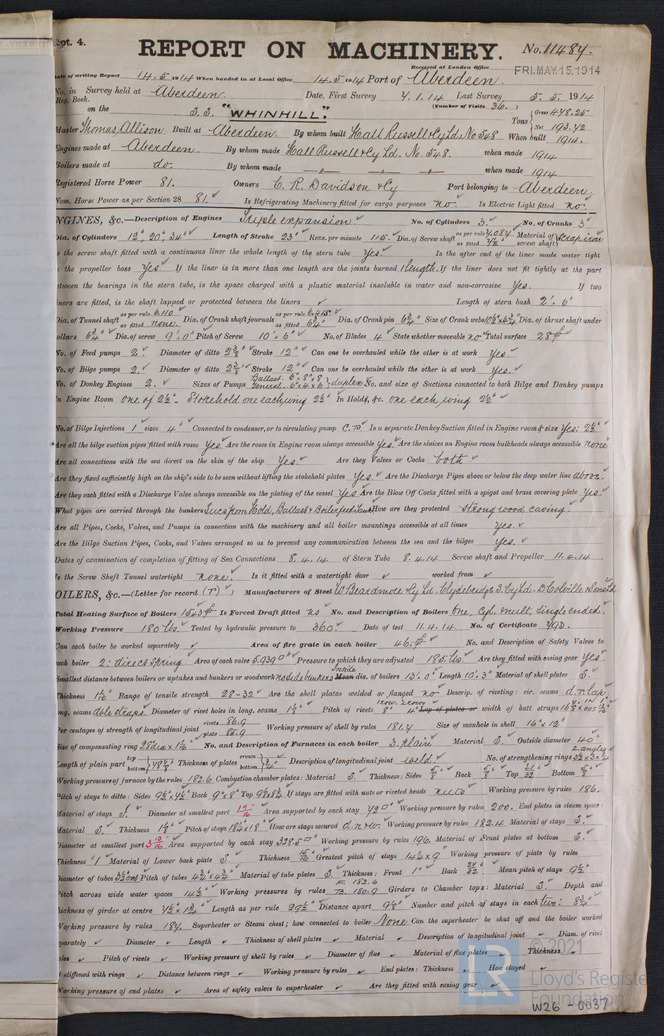 Rpt. 4.
REPORT ON MACHINERY. No. 11484.
Received at London Office FRI. MAY. 15. 1914
Date of writing Report 14.5.1914 When handed in at Local Office 14.5.1914 Port of Aberdeen.
No. in Survey held at Aberdeen. Date, First Survey 7.1.14 Last Survey 5.5.1914
Reg. Book. (Number of Visits 36.)
on the S.S. "WHINHILL." Tons Gross 478.25 Net 193.42
Master Thomas Allison Built at Aberdeen. By whom built Hall Russell & Cy Ld. No 548 When built 1914.
Engines made at Aberdeen. By whom made Hall Russell & Cy Ld. No. 548. when made 1914
Boilers made at do. By whom made when made 1914
Registered Horse Power 81. Owners C. R. Davidson & Cy Port belonging to Aberdeen
Nom. Horse Power as per Section 28 81. Is Refrigerating Machinery fitted for cargo purposes no. Is Electric Light fitted no.
ENGINES, &c.—Description of Engines Triple expansion. No. of Cylinders 3. No. of Cranks 3
Dia. of Cylinders 12", 20", 34" Length of Stroke 23" Revs. per minute 115. Dia. of Screw shaft as per rule as fitted Material of screw shaft Scrap iron
Is the screw shaft fitted with a continuous liner the whole length of the stern tube Yes Is the after end of the liner made water tight
in the propeller boss Yes If the liner is in more than one length are the joints burned 1 length. If the liner does not fit tightly at the part
between the bearings in the stern tube, is the space charged with a plastic material insoluble in water and non-corrosive Yes. If two
liners are fitted, is the shaft lapped or protected between the liners Length of stern bush 2'. 6"
Dia. of Tunnel shaft as per rule 6.110 as fitted none. Dia. of Crank shaft journals as per rule 6.415" as fitted 6¾" Dia. of Crank pin 6¾" Size of Crank webs Dia. of thrust shaft under
collars 6¾" Dia. of screw 9'.0" Pitch of Screw 10'.6" No. of Blades 4 State whether moveable no Total surface 28 ft
No. of Feed pumps 2. Diameter of ditto 2⅜" Stroke 12" Can one be overhauled while the other is at work Yes
No. of Bilge pumps 2. Diameter of ditto 2⅜" Stroke 12" Can one be overhauled while the other is at work Yes.
No. of Donkey Engines 2. Sizes of Pumps Ballast 6" x 8" x 8 General 6" x 4 x 6 duplex No. and size of Suctions connected to both Bilge and Donkey pumps
In Engine Room one of 2½". Stokehold one each wing 2½" In Holds, &c. one each wing 2½"
No. of Bilge Injections 1 sizes 4" Connected to condenser, or to circulating pump C.P. Is a separate Donkey Suction fitted in Engine room & size Yes: 2½"
Are all the bilge suction pipes fitted with roses Yes. Are the roses in Engine room always accessible Yes. Are the sluices on Engine room bulkheads always accessible none
Are all connections with the sea direct on the skin of the ship Yes. Are they Valves or Cocks both
Are they fixed sufficiently high on the ship's side to be seen without lifting the stokehold plates Yes Are the Discharge Pipes above or below the deep water line above.
Are they each fitted with a Discharge Valve always accessible on the plating of the vessel Yes Are the Blow Off Cocks fitted with a spigot and brass covering plate Yes.
What pipes are carried through the bunkers Sucs from Hold, Ballast & Boiler feed Tanks How are they protected strong wood casing.
Are all Pipes, Cocks, Valves, and Pumps in connection with the machinery and all boiler mountings accessible at all times Yes.
Are the Bilge Suction Pipes, Cocks, and Valves arranged so as to prevent any communication between the sea and the bilges Yes.
Dates of examination of completion of fitting of Sea Connections 8.4.14 of Stern Tube 8.4.14 Screw shaft and Propeller 11.4.14
Is the Screw Shaft Tunnel watertight none. Is it fitted with a watertight door worked from
BOILERS, &c.—(Letter for record (T)) Manufacturers of Steel W. Beardmore & Cy Ld. Clydebridge S. Cy Ld. D. Colville & Sons Ld
Total Heating Surface of Boilers Is Forced Draft fitted no No. and Description of Boilers One, Cyl. Mult, Single ended.
Working Pressure 180 lbs. Tested by hydraulic pressure to 360 Date of test 11.4.14 No. of Certificate 793.
Can each boiler be worked separately Area of fire grate in each boiler 46 ft No. and Description of Safety Valves to
each boiler 2: direct spring Area of each valve 5.939" Pressure to which they are adjusted 185 lbs. Are they fitted with easing gear Yes
Smallest distance between boilers or uptakes and bunkers or woodwork no side bunkers Inside Mean dia. of boilers 13'.0" Length 10'.3" Material of shell plates S.
Thickness Range of tensile strength 28-32 Are the shell plates welded or flanged no Descrip. of riveting: cir. seams d.r. lap.
long. seams dble straps Diameter of rivet holes in long. seams Pitch of rivets 8" 4" Lap of plates or width of butt straps
Per centages of strength of longitudinal joint rivets 86.9 plate 86.9 Working pressure of shell by rules 181.4 Size of manhole in shell 16" x 12"
Size of compensating ring No. and Description of Furnaces in each boiler 3. plain Material S. Outside diameter 40"
Length of plain part top bottom Thickness of plates crown bottom Description of longitudinal joint weld. No. of strengthening rings 2. angles
Working pressure of furnace by the rules 182.6 Combustion chamber plates: Material S. Thickness: Sides ⅝" Back ⅝" Top 21/32 Bottom
Pitch of stays to ditto: Sides 9½" x 9½" Back 9" x 8" Top If stays are fitted with nuts or riveted heads nuts Working pressure by rules 186.
Material of stays S. Diameter at smallest part Area supported by each stay Working pressure by rules 200. End plates in steam space:
Material S. Thickness Pitch of stays How are stays secured d.n. & w. Working pressure by rules 182.4 Material of stays S.
Diameter at smallest part Area supported by each stay 328.5" Working pressure by rules 196. Material of Front plates at bottom S.
Thickness 1" Material of Lower back plate S Thickness Greatest pitch of stays 14½ x 9 Working pressure of plate by rules
Diameter of tubes Pitch of tubes Material of tube plates S. Thickness: Front 1" Back Mean pitch of stays 9½"
Pitch across wide water spaces 14½" Working pressures by rules F. 182.6 B. 180.9 Girders to Chamber tops: Material S. Depth and
thickness of girder at centre Length as per rule Distance apart 9½" Number and pitch of stays in each two: 8¾"
Working pressure by rules 184. Superheater or Steam chest; how connected to boiler None Can the superheater be shut off and the boiler worked
separately Diameter Length Thickness of shell plates Material Description of longitudinal joint Diam. of rivet
holes Pitch of rivets Working pressure of shell by rules Diameter of flue Material of flue plates Thickness
If stiffened with rings Distance between rings Working pressure by rules End plates: Thickness How stayed
Working pressure of end plates Area of safety valves to superheater Are they fitted with easing gear
© 2021
Lloyd's Register
Foundation
W26-0037